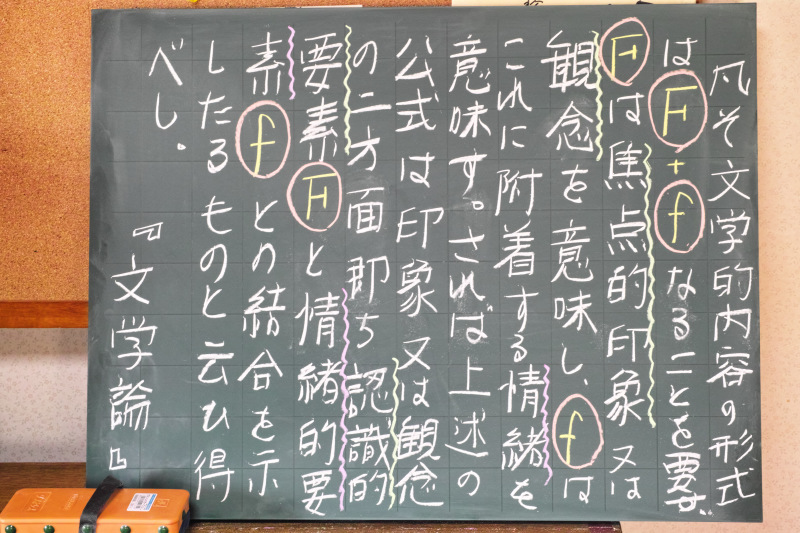 凡そ文学的内容の形式
はF+fなることを要す。
Fは焦点的印象又は
観念を意味し、fは
これに附着する情緒を
意味す。されば上述の
公式は印象又は観念
の二方面即ち認識的
要素Fと情緒的要
素fとの結合を示
したるものと云ひ得
べし。
『文学論』